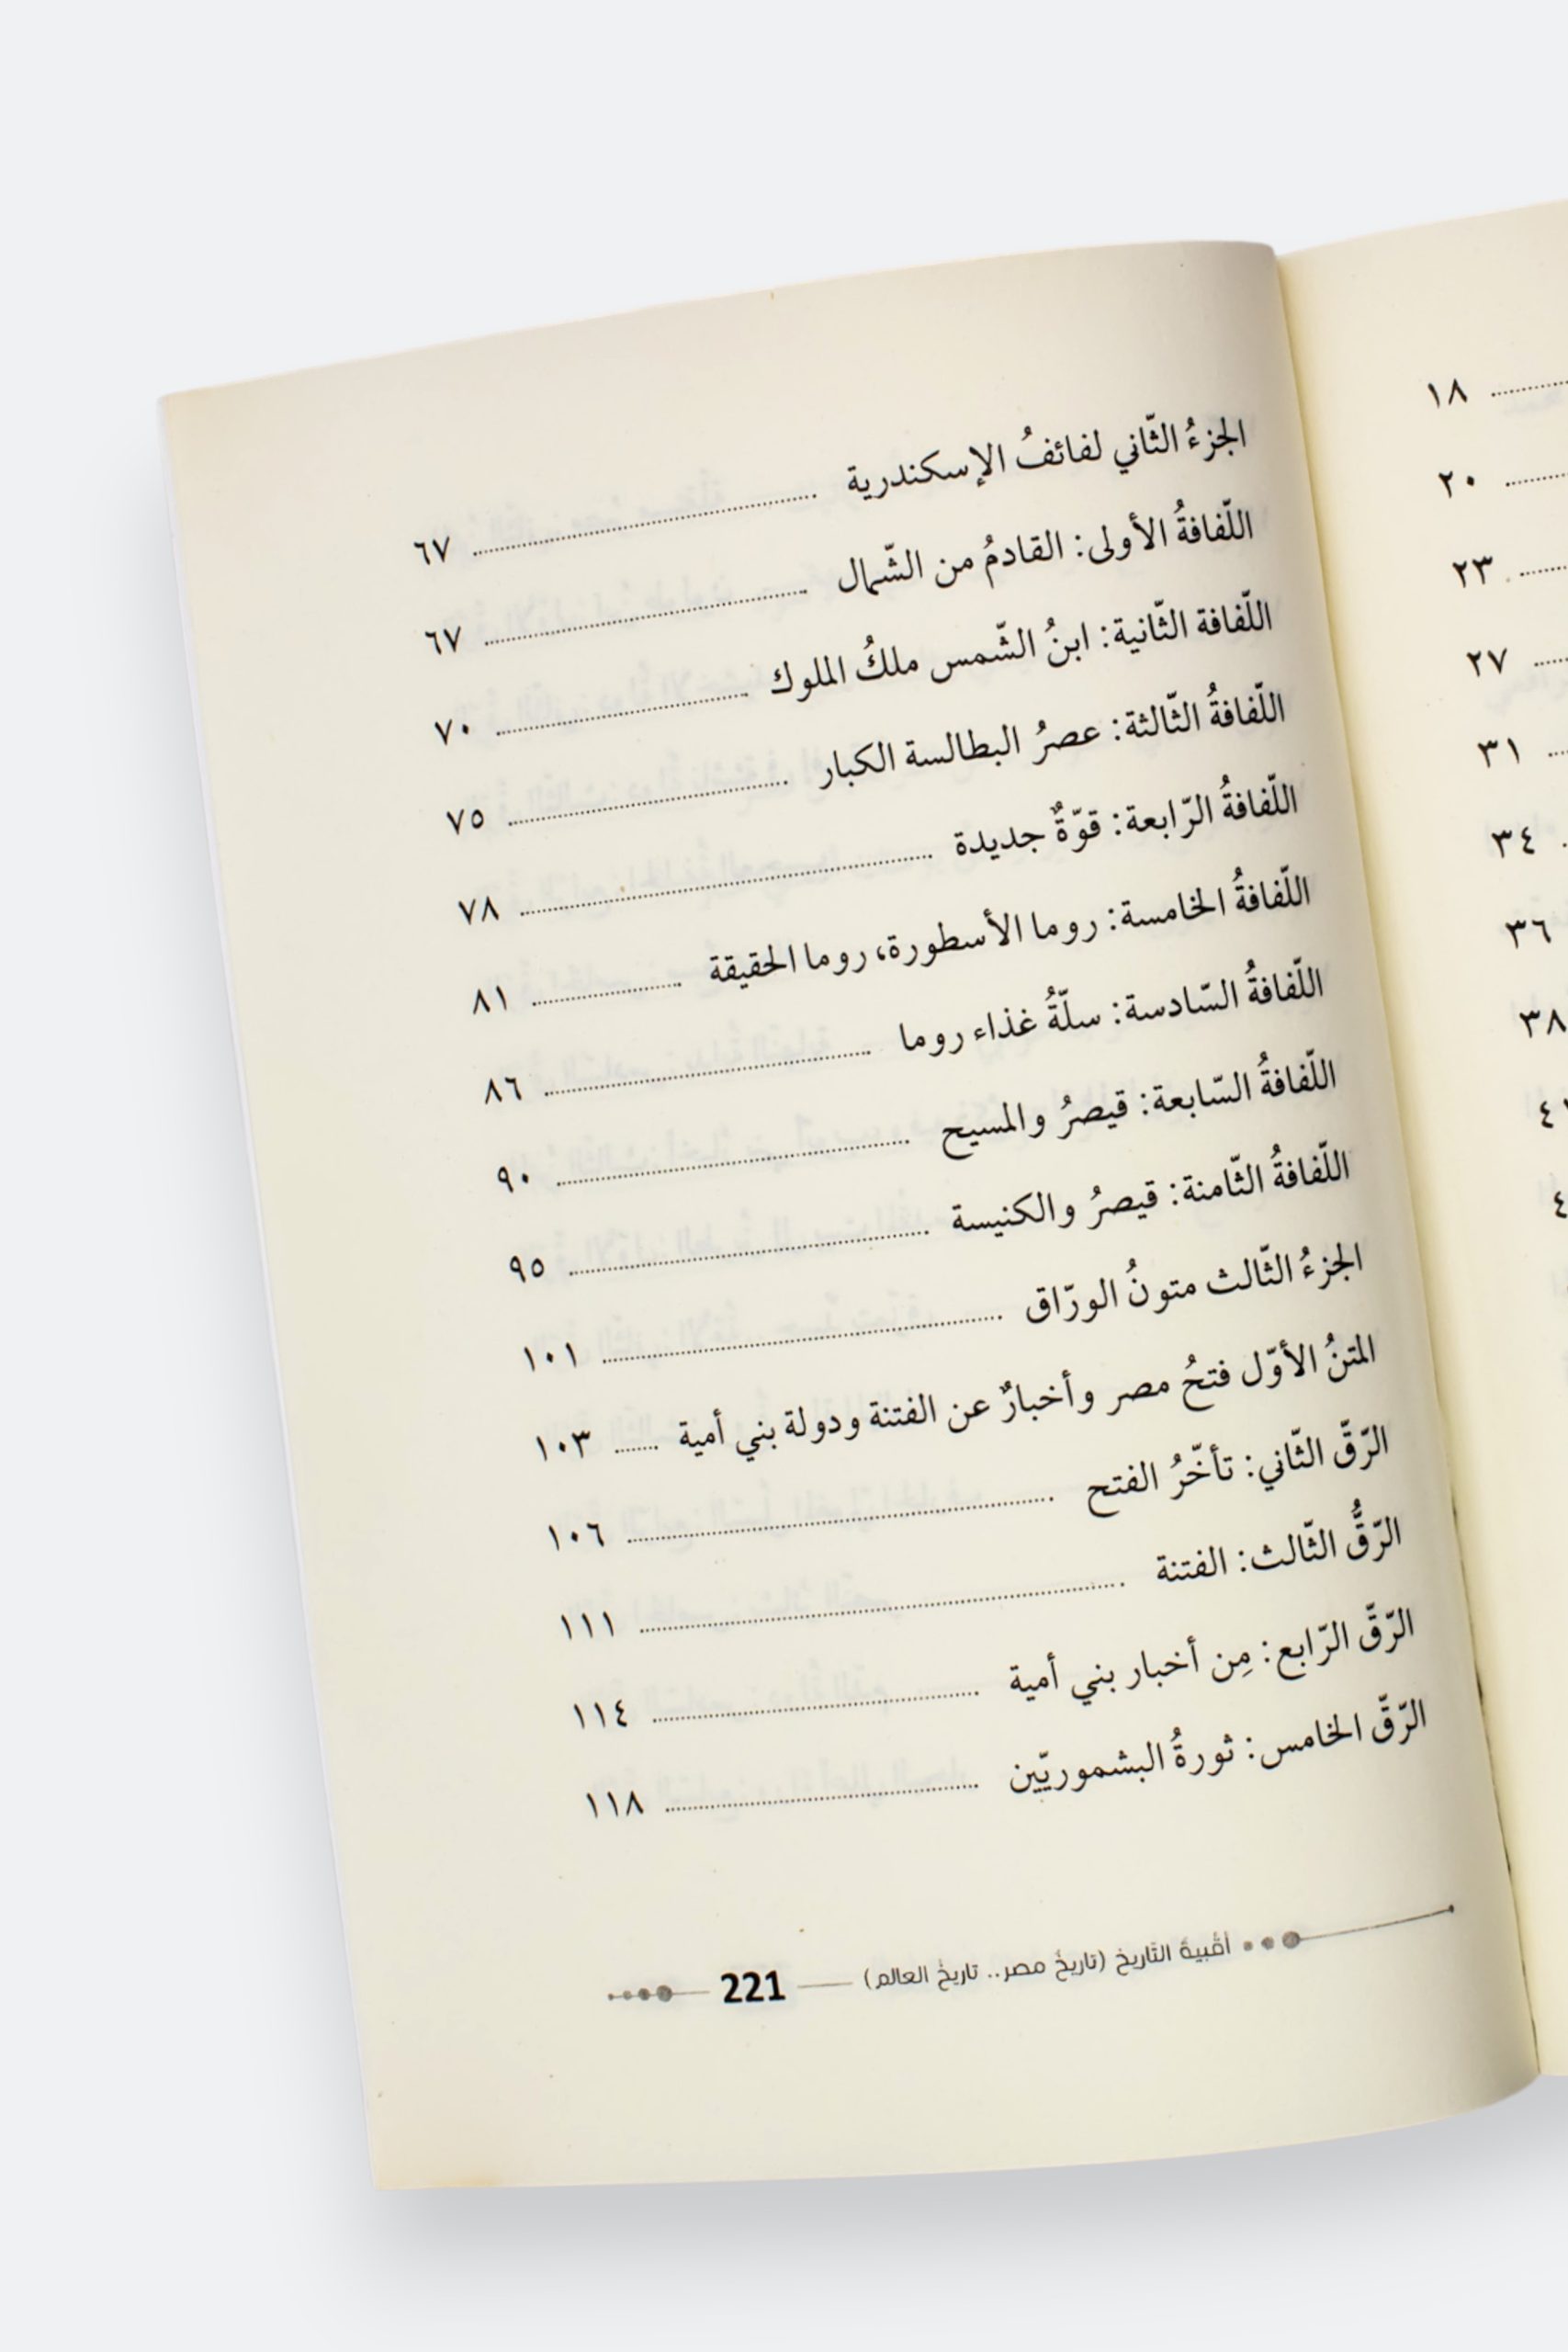 الجزءُ الثّاني لفائفُ الإسكندرية ........ ٦٧
اللّفافةُ الأولى: القادمُ من الشّمال ........ ٦٧
اللّفافة الثّانية: ابنُ الشّمس ملكُ الملوك ........ ٧٠
اللّفافةُ الثّالثة: عصرُ البطالسة الكبار ........ ٧٥
اللّفافةُ الرّابعة: قوّةٌ جديدة ........ ٧٨
اللّفافةُ الخامسة: روما الأسطورة، روما الحقيقة ........ ٨١
اللّفافةُ السّادسة: سلّةُ غذاء روما ........ ٨٦
اللّفافةُ السّابعة: قيصرُ والمسيح ........ ٩٠
اللّفافةُ الثّامنة: قيصرُ والكنيسة ........ ٩٥
الجزءُ الثّالث متونُ الورّاق ........ ١٠١
المتنُ الأوّل فتحُ مصر وأخبارٌ عن الفتنة ودولة بني أمية ........ ١٠٣
الرّقّ الثّاني: تأخّرُ الفتح ........ ١٠٦
الرّقُّ الثّالث: الفتنة ........ ١١١
الرّقّ الرّابع: مِن أخبار بني أمية ........ ١١٤
الرّقّ الخامس: ثورةُ البشموريّين ........ ١١٨
أقبية التّاريخ (تاريخُ مصر.. تاريخُ العالم) 221
١٨
٢٠
٢٣
٢٧
٣١
٣٤
٣٦
٣٨